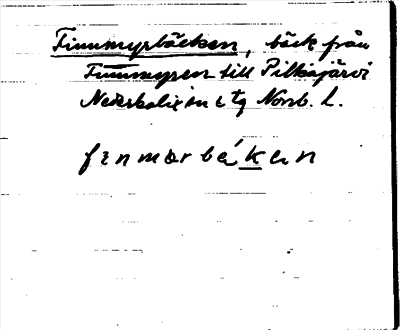 Finnmyrbäcken, bäck från
Finnmyren till Pitkäjärvi
Nederkalix sn o tg Norrb. l.
finmorbékan